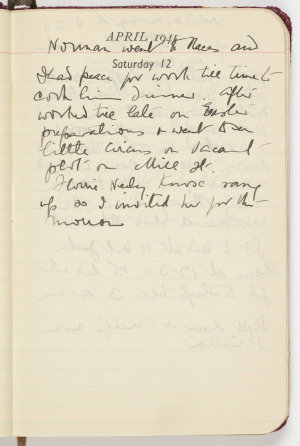 APRIL 1941
Norman went to Races and
Saturday 12
I had peace for work till time to
cook him dinner. After
worked till late on Easter
preparations & went to see
little Circus on vacant
plot on Mill St.
Florrie Knose rang
up so I invited her for the
morrow